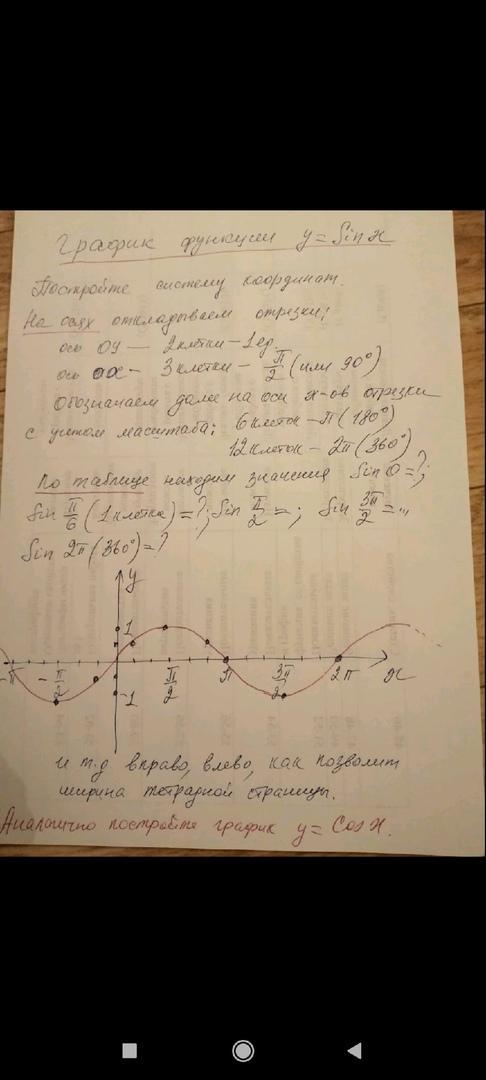 График функции y = Sin x
Постройте систему координат.
На осях откладываем отрезки:
ось ОУ — 2 клетки – 1 ед.
ось ОХ – 3 клетки – π/2 (или 90°)
Обозначаем далее на оси х-ов отрезки
с учетом масштаба: 6 клеток – π (180°)
12 клеток – 2π (360°)
По таблице находим значения Sin 0 = ?;
Sin π/6 (1 клетка) = ?; Sin π/2 = ; Sin 3π/2 = ...
Sin 2π (360°) = ?
y
1
-π -π/2 π/2 π 3π/2 2π x
-1
и т.д вправо, влево, как позволит
ширина тетрадной страницы.
Аналогично постройте график y = Cos x.